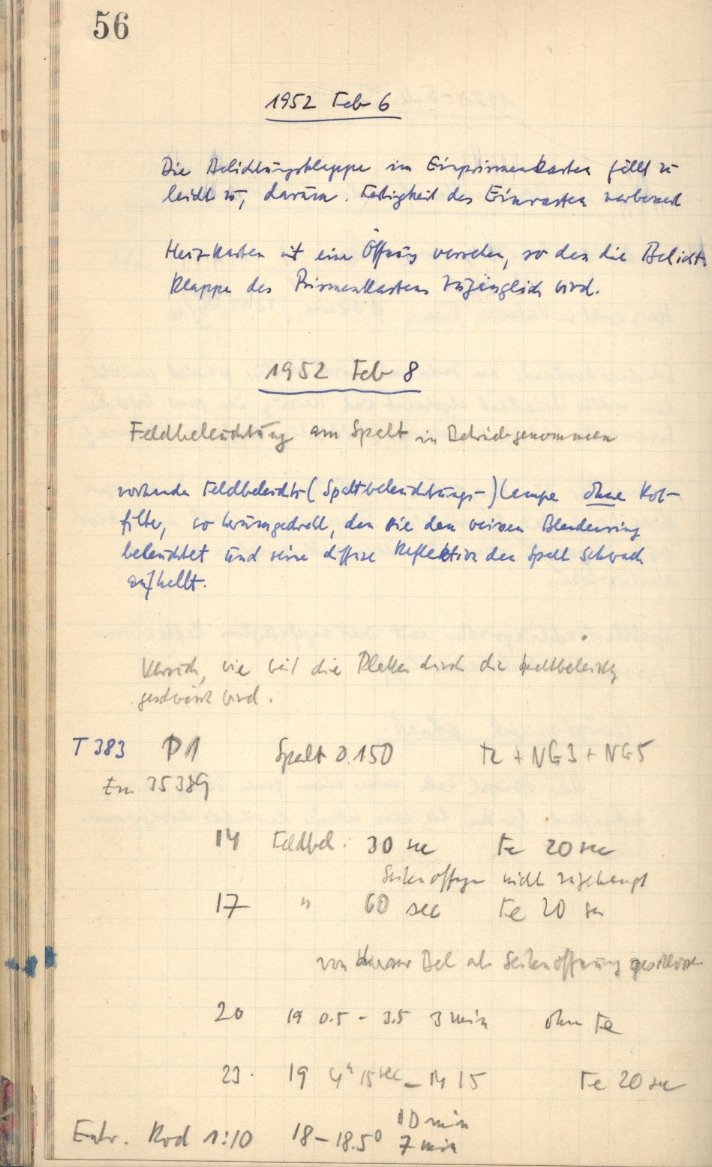 56
1952 Feb 6
Die Belichtungsklappe im Einprismenkasten fällt zu
leicht zu, darum. Festigkeit des Einrasten verbessert
Heizkasten ist eine Öffnung versehen, so dass die Belicht.
klappe des Prismenkastens zugänglich wird.
1952 Feb 8
Feldbeleuchtung am Spalt in Betrieb genommen
vorhandene Feldbeleucht-(Spaltbeleuchtungs-)lampe ohne Rot-
filter, so herumgedreht, dass sie den weissen Blendenring
beleuchtet und seine diffuse Reflektion den Spalt schwach
aufhellt.
Versuch, wie weit die Platten durch die Spaltbeleuchtg
geschwärzt wird.
T 383 P1 Spalt 0.150 Fe + NG3 + NG5
Em 35389
14 Feldbel. 30 sec Fe 20 sec
Seitenöffnungen nicht zugehängt
17 " 60 sec Fe 20 sec
von dieser Bel ab Seitenöffnung geschlossen
20 19 0.5 - 3.5 3 min ohne Fe
23. 19 4h 15 sec - 14 15 Fe 20 sec
10 min
Entw. Rod 1:10 18-18.5° 7 min